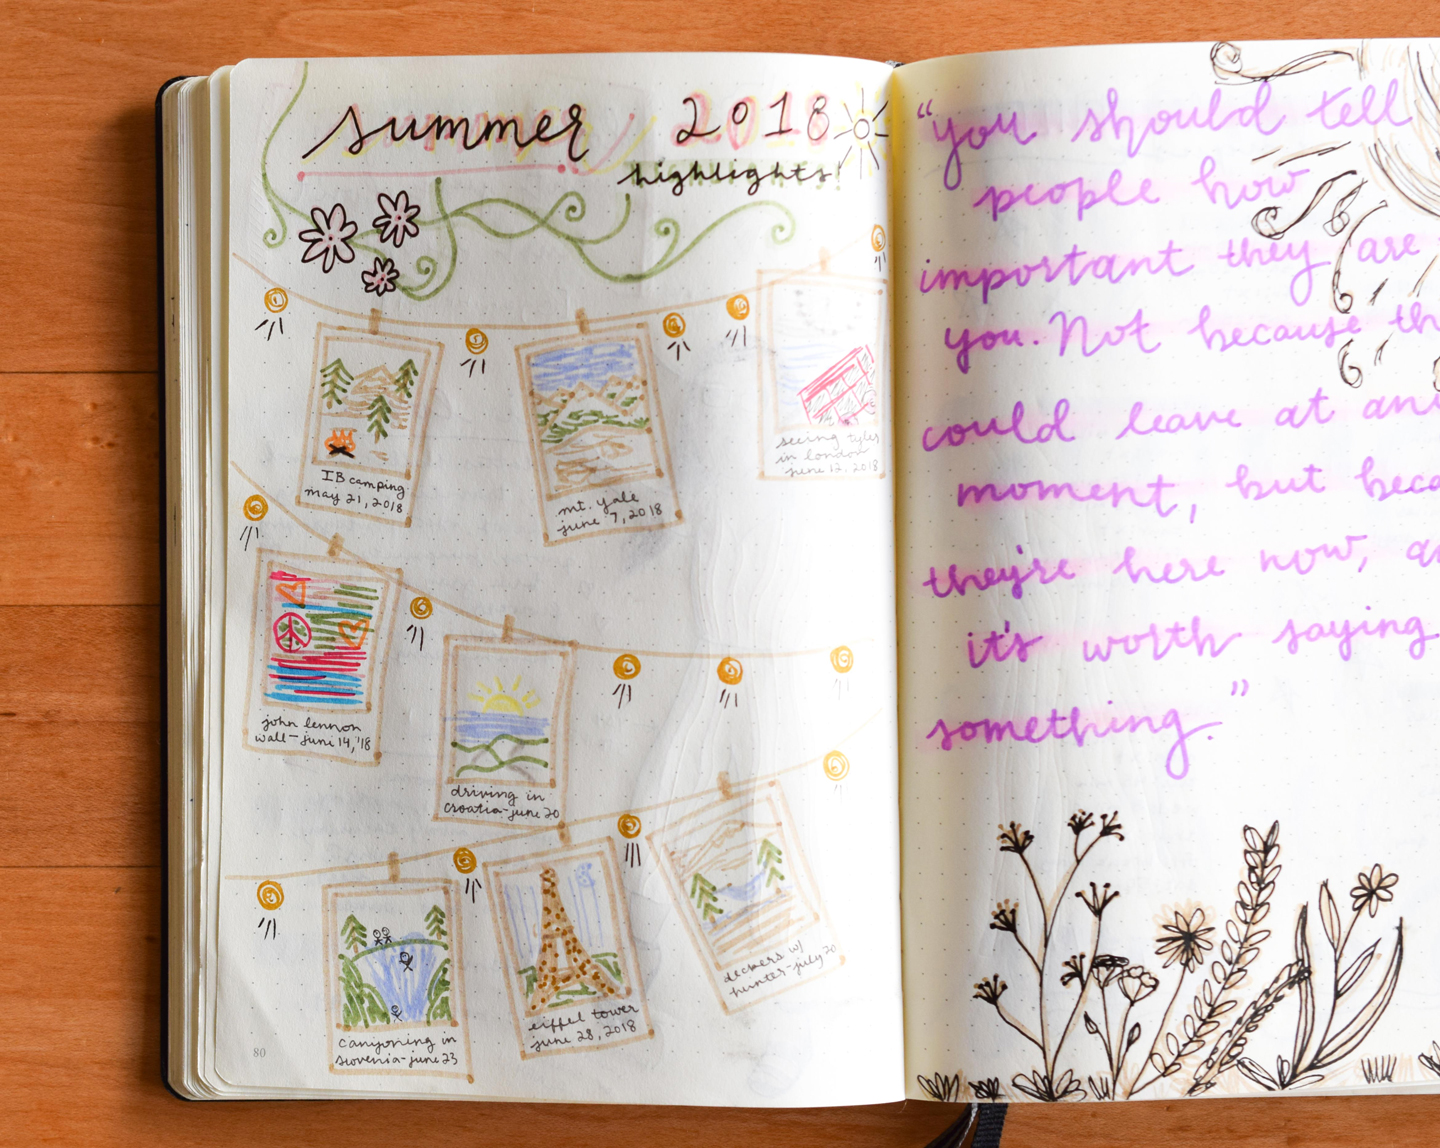 summer 2018
highlights!
IB camping
may 21, 2018
mt. yale
june 7, 2018
seeing tyler
in london
june 12, 2018
john lennon
wall - juni 14, '18
driving in
croatia - june 20
canyoning in
slovenia - june 23
eiffel tower
june 28, 2018
deckers w/
hunter - july 20
80
"you should tell
people how
important they are
you. Not because th
could leave at an
moment, but beca
they're here now, a
it's worth saying
something."